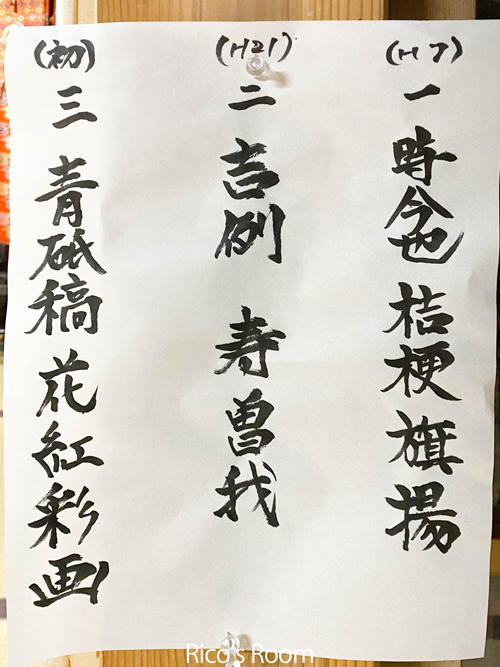 (H7)
一 時今也 桔梗旗揚
(H21)
二 吉例 寿曽我
(初)
三 青砥稿 花紅彩画
Rico's Room